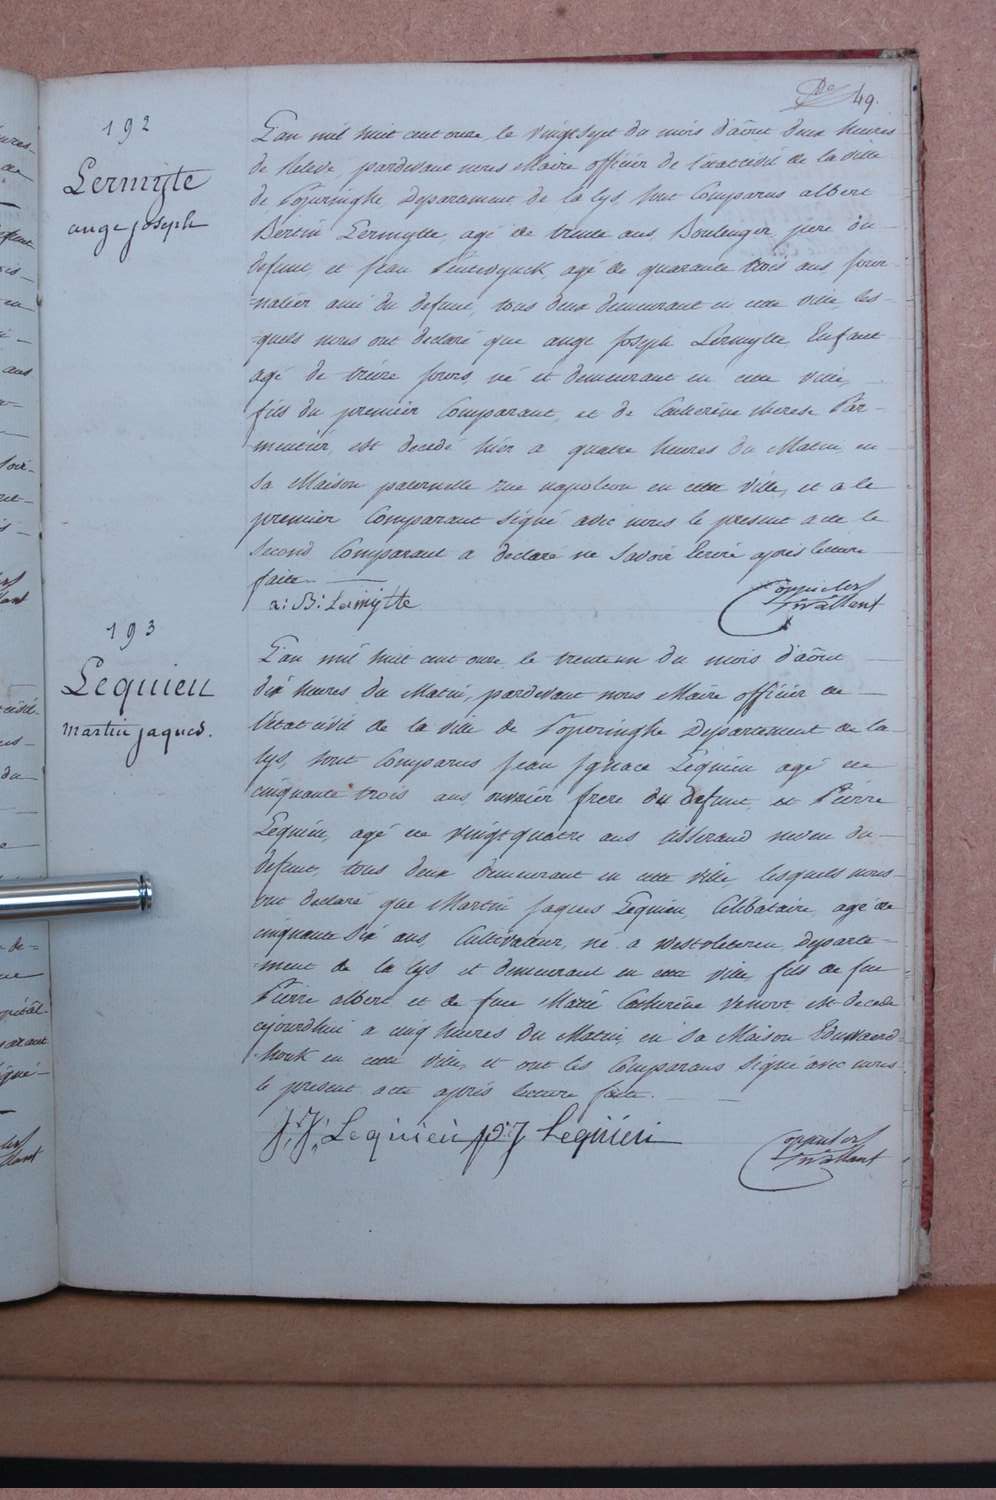 49.
192
Lermytte
ange joseph
L'an mil huit cent onze, le vingt sept du mois d'aôut deux heures
de Relevé, pardevant nous Maire officier de l'état civil de la ville
de Poperinghe Departement de la lys, sont Comparus albert
Bertin Lermytte, agé de trente ans, Boulenger, pere du
defunt, et jean agé de quarante trois ans jour-
nalier ami du defunt, tous deux demeurant en cette ville, les-
quels nous ont declaré que ange joseph Lermytte, Enfant
agé de treize jours, né et demeurant en cette ville,
fils du premier Comparant, et de Catherine therese Par-
mentier, est decedé hier a quatre heures du Matin en
sa Maison paternelle rue napoleon en cette ville, et a le
premier Comparant signé avec nous le present acte le
second Comparant a declaré ne savoir Ecrire après lecture
faite.
a: B: Lermytte
193
Lequieu
martin jaques.
L'an mil huit cent onze le trente un du mois d'aôut
dix heures du Matin, pardevant nous Maire officier de
l'état civil de la ville de Poperinghe Departement de la
lys, sont Comparus jean jgnace Lequieu agé de
cinquante trois ans, ouvrier frere du defunt, et Pierre
Lequieu, agé de vingt quatre ans tisserand neveu du
defunt, tous deux demeurant en cette ville lesquels nous
ont declaré que Martin jaques Lequieu, Celibataire, agé de
cinquante six ans, Cultivateur, né a westvleteren, Departe-
ment de la lys et demeurant en cette ville, fils de feu
Pierre albert et de feue Marie Catherine est decedé
ajourdhui a cinq heures du Matin, en sa Maison
en cette ville, et ont les Comparans signé avec nous
le present acte après lecture faite.
J: J: Lequieu p: J Lequieu